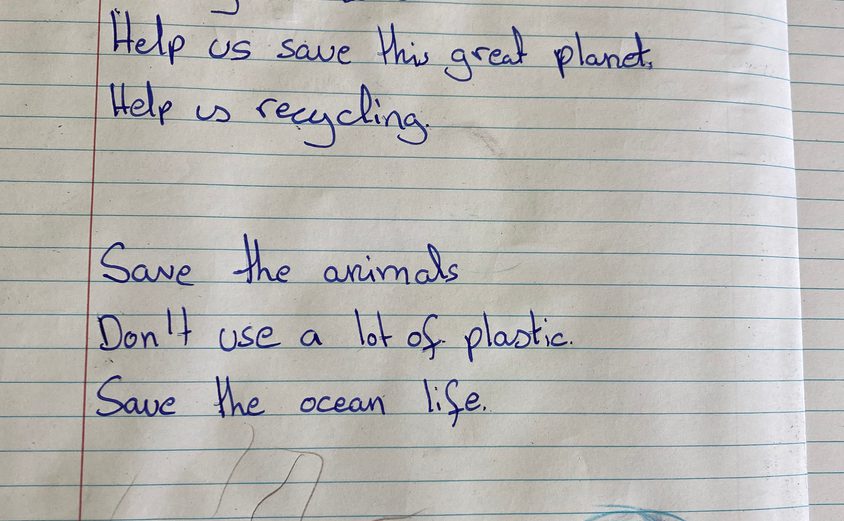 Help us save this great planet.
Help us recycling.
Save the animals
Don't use a lot of plastic.
Save the ocean life.